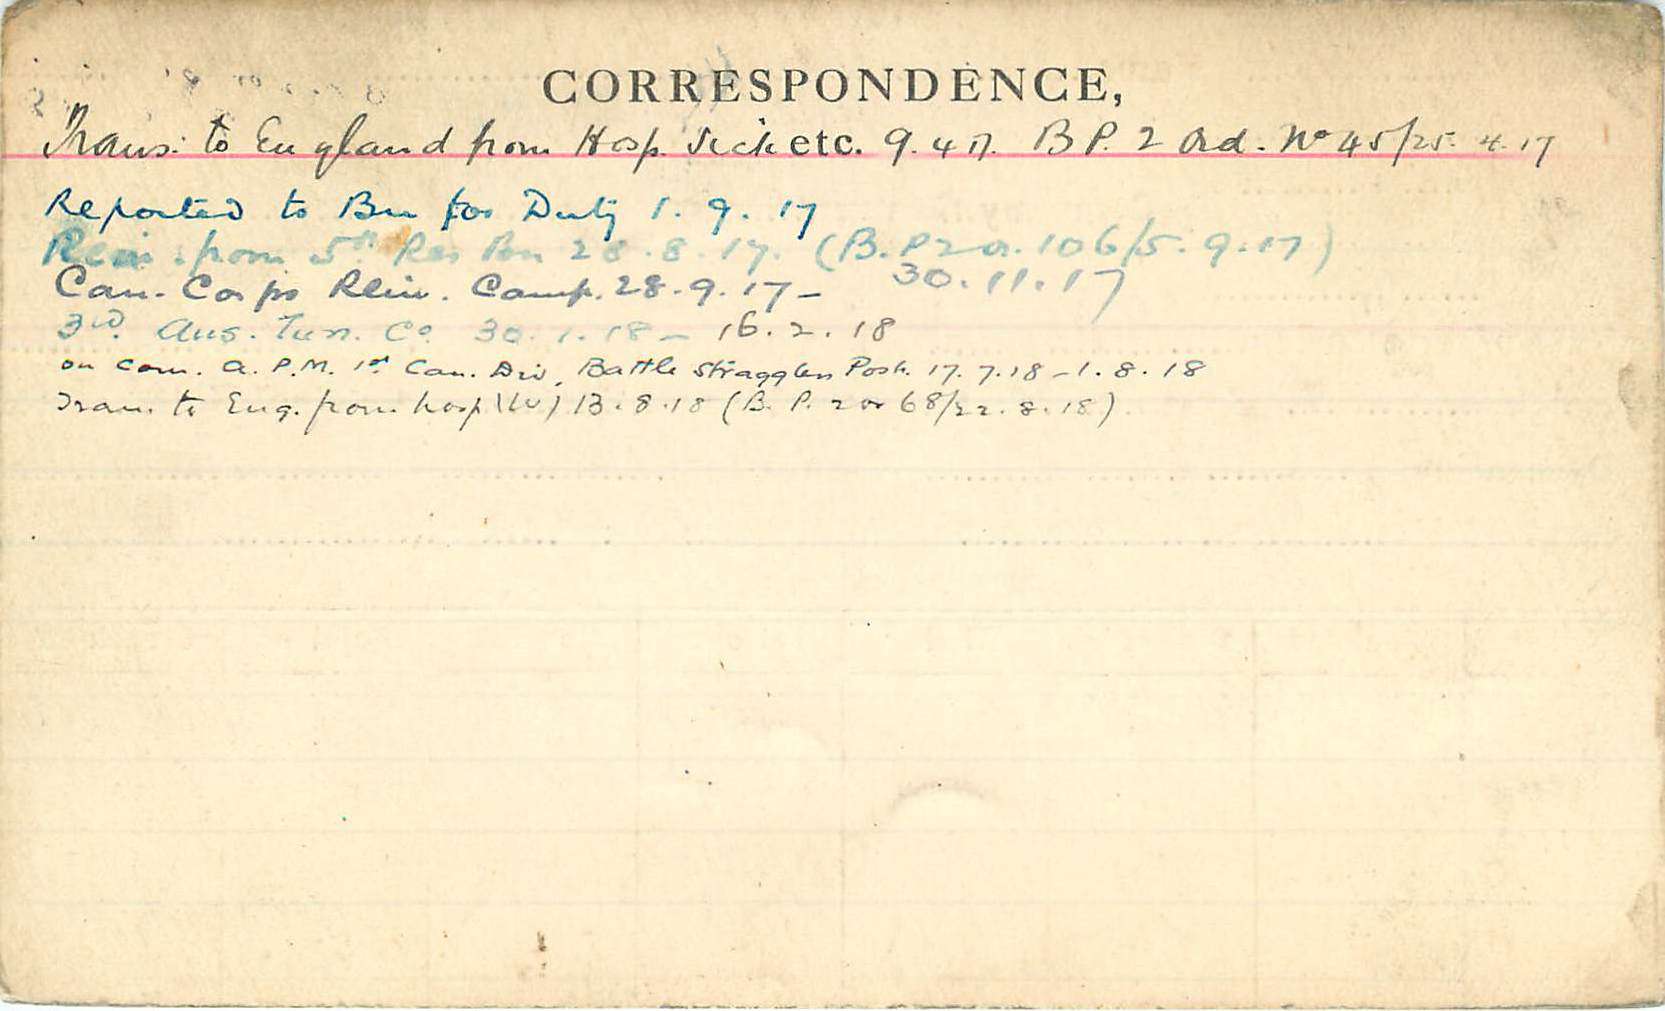 CORRESPONDENCE,
Trans. to England from Hosp. Sick etc. 9.4.17. B.P. 2 Ord. No 45/25.4.17
Reported to Bn for Duty 1.9.17
Rein. from 5th Res Bn 28.8.17. (B.P 2 o. 106/5.9.17)
Can. Corps Rein. Camp. 28.9.17 - 30.11.17
3rd Aus. Tun. Co. 30.1.18 - 16.2.18
on com. A.P.M. 1st Can. Div. Battle Stragglers Post. 17.7.18 - 1.8.18
Tran. to Eng. from hosp (W) 13.8.18 (B.P. 2 or 68/22.8.18)